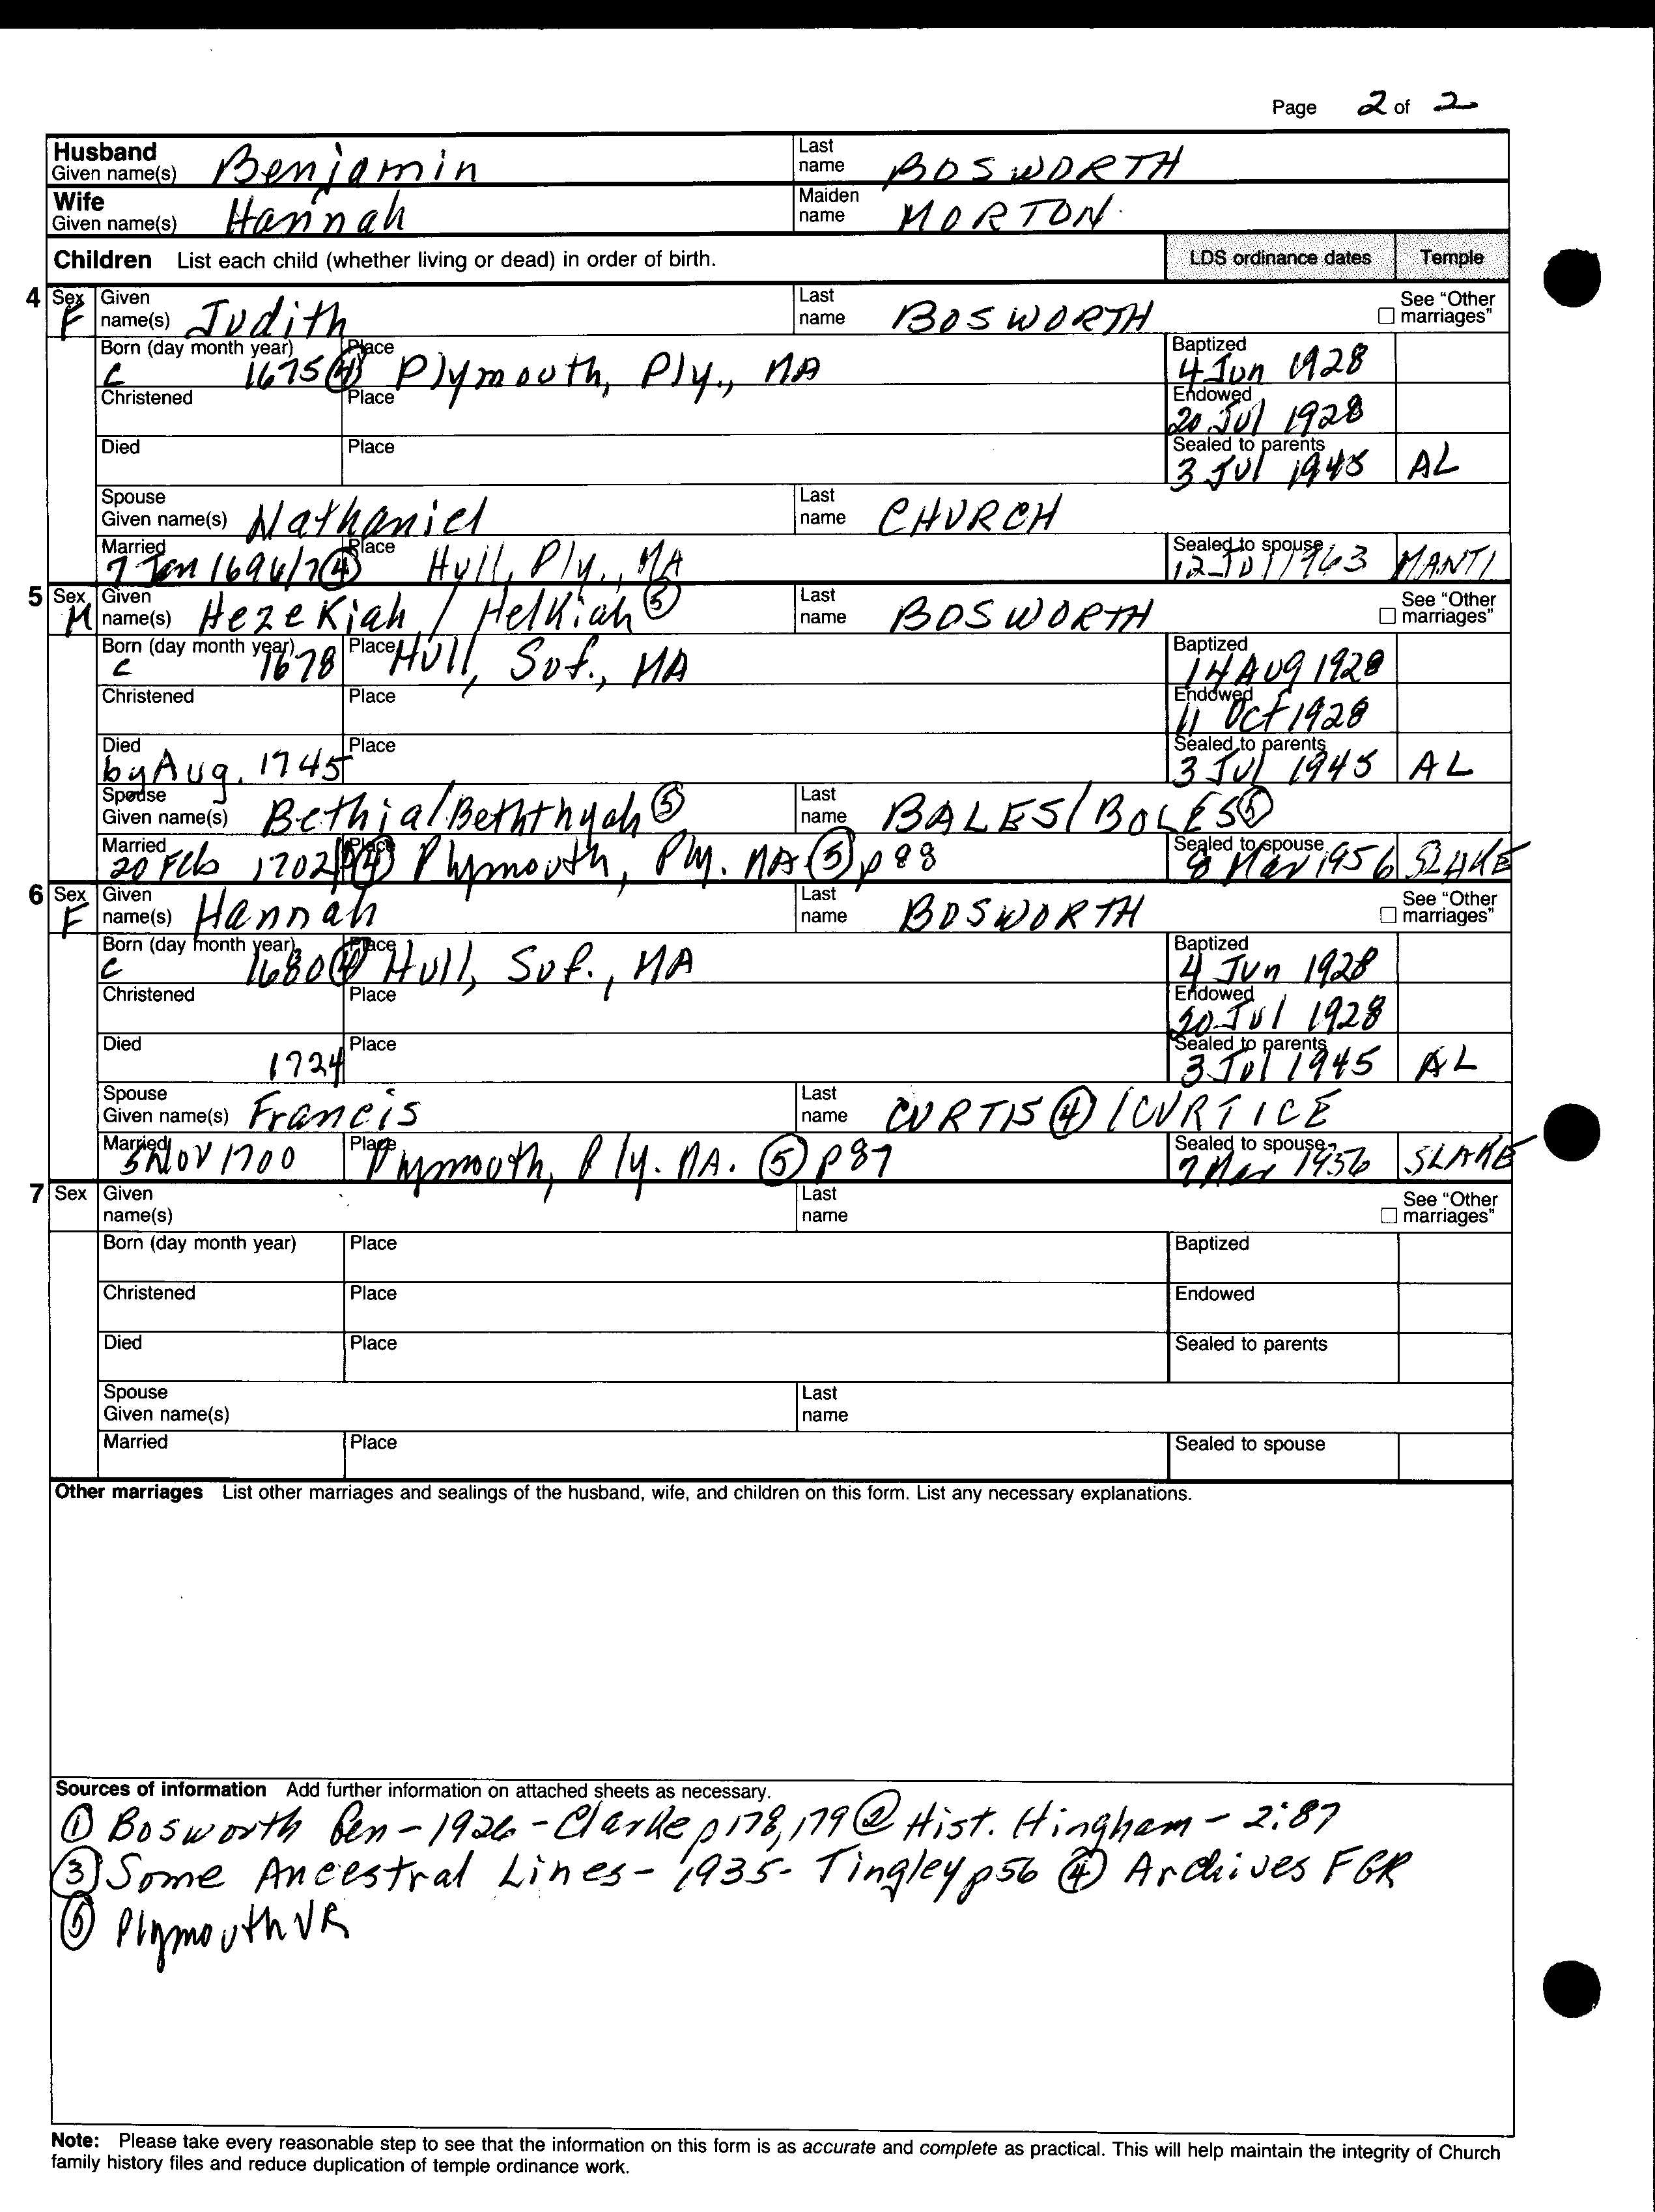 Page 2 of 2
Husband Given name(s) Benjamin Last name BOSWORTH
Wife Given name(s) Hannah Maiden name MORTON
Children List each child (whether living or dead) in order of birth. LDS ordinance dates Temple
4 Sex F Given name(s) Judith Last name BOSWORTH See "Other marriages"
Born (day month year) c 1675 ④ Place Plymouth, Ply., MA Baptized 4 Jun 1928
Christened Place Endowed 20 Jul 1928
Died Place Sealed to parents 3 Jul 1945 AL
Spouse Given name(s) Nathaniel Last name CHURCH
Married 7 Jan 1696/7 ④ Place Hull, Ply., MA Sealed to spouse 12 Jul 1963 MANTI
5 Sex M Given name(s) Hezekiah / Helkiah ⑤ Last name BOSWORTH See "Other marriages"
Born (day month year) c 1678 Place Hull, Suf., MA Baptized 14 Aug 1928
Christened Place Endowed 11 Oct 1928
Died by Aug. 1745 Place Sealed to parents 3 Jul 1945 AL
Spouse Given name(s) Bethia/Beththyah ⑤ Last name BALES/BOLES ⑤
Married 20 Feb 1702/ ④ Place Plymouth, Ply. MA ⑤ p 88 Sealed to spouse 8 Mar 1956 SLAKE
6 Sex F Given name(s) Hannah Last name BOSWORTH See "Other marriages"
Born (day month year) c 1680 ④ Place Hull, Suf., MA Baptized 4 Jun 1928
Christened Place Endowed 20 Jul 1928
Died 1724 Place Sealed to parents 3 Jul 1945 AL
Spouse Given name(s) Francis Last name CURTIS ④ / CURTICE
Married 5 Nov 1700 Place Plymouth, Ply. MA. ⑤ p 87 Sealed to spouse 7 Mar 1956 SLAKE
7 Sex Given name(s) Last name See "Other marriages"
Born (day month year) Place Baptized
Christened Place Endowed
Died Place Sealed to parents
Spouse Given name(s) Last name
Married Place Sealed to spouse
Other marriages List other marriages and sealings of the husband, wife, and children on this form. List any necessary explanations.
Sources of information Add further information on attached sheets as necessary.
① Bosworth Gen - 1926 - Clarke p 178, 179 ② Hist. Hingham - 2:87
③ Some Ancestral Lines - 1935 - Tingley p 56 ④ Archives FGR
⑤ Plymouth VR
Note: Please take every reasonable step to see that the information on this form is as accurate and complete as practical. This will help maintain the integrity of Church
family history files and reduce duplication of temple ordinance work.